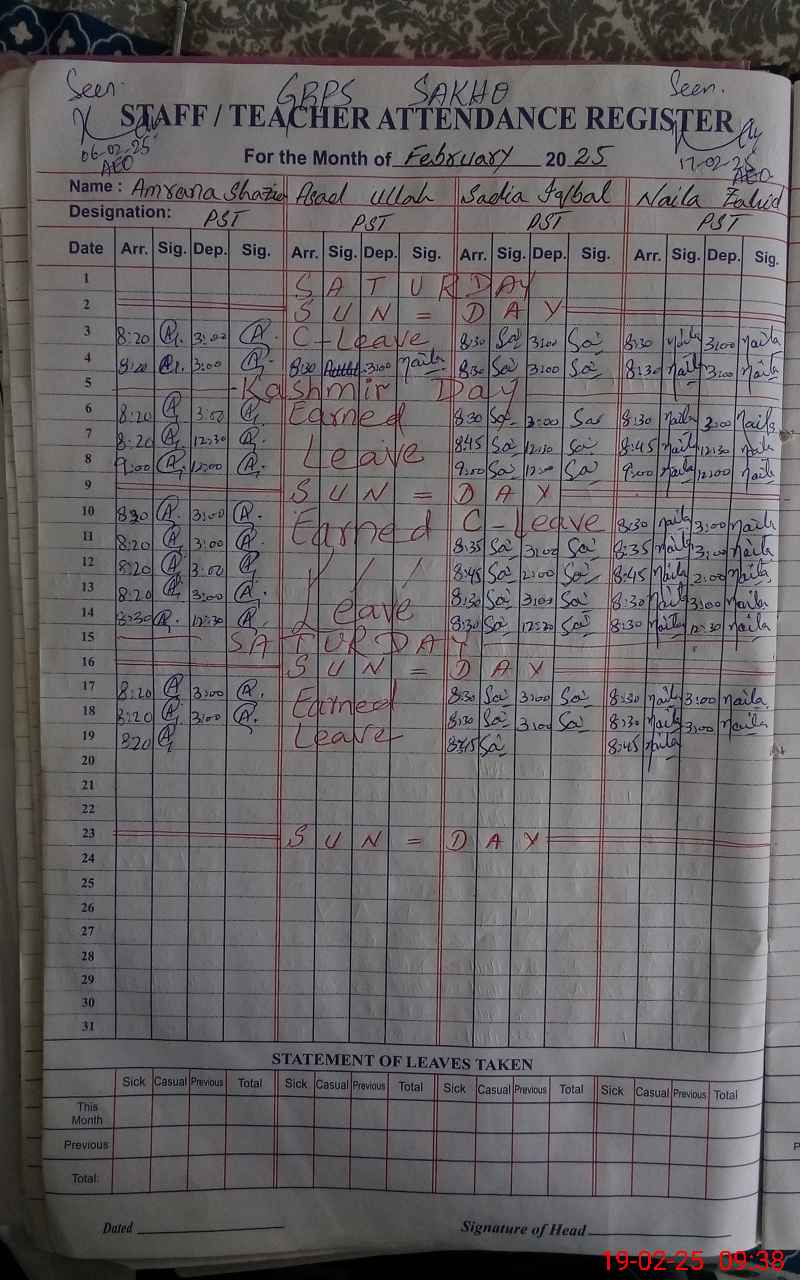 Seen. GRPS SAKHO Seen.
STAFF / TEACHER ATTENDANCE REGISTER
06-02-25 AEO For the Month of February 20 25 17-02-25 AEO
Name : Amrana Shazia Asad Ullah Sadia Iqbal Naila Zahid
Designation: PST PST PST PST
Date Arr. Sig. Dep. Sig. Arr. Sig. Dep. Sig. Arr. Sig. Dep. Sig. Arr. Sig. Dep. Sig.
1 SATURDAY
2 SUN = DAY
3 8:20 A. 3:00 A. C-Leave 8:30 Sa 3:00 Sa 8:30 Naila 3:00 Naila
4 8:20 A. 3:00 A. 8:30 3:00 Naila 8:30 Sa 3:00 Sa 8:30 Naila 3:00 Naila
5 Kashmir Day
6 8:20 A 3:00 A Earned 8:30 Sa 3:00 Sa 8:30 Naila 3:00 Naila
7 8:20 A 12:30 A. Leave 8:45 Sa 12:30 Sa 8:45 Naila 12:30 Naila
8 9:00 A. 12:00 A. 9:00 Sa 12:00 Sa 9:00 Naila 12:00 Naila
9 SUN = DAY
10 8:30 A. 3:00 A. Earned C-Leave 8:30 Naila 3:00 Naila
11 8:20 A 3:00 A. 8:35 Sa 3:00 Sa 8:35 Naila 3:00 Naila
12 8:20 A 3:00 A / / / 8:45 Sa 2:00 Sa 8:45 Naila 2:00 Naila
13 8:20 A 3:00 A. Leave 8:30 Sa 3:00 Sa 8:30 Naila 3:00 Naila
14 8:30 A. 12:30 A. 8:30 Sa 12:30 Sa 8:30 Naila 12:30 Naila
15 SATURDAY
16 SUN = DAY
17 8:20 A 3:00 A. Earned 8:30 Sa 3:00 Sa 8:30 Naila 3:00 Naila
18 8:20 A 3:00 A. 8:30 Sa 3:00 Sa 8:30 Naila 3:00 Naila
19 8:20 A Leave 8:45 Sa 8:45 Naila
20
21
22
23 SUN = DAY
24
25
26
27
28
29
30
31
STATEMENT OF LEAVES TAKEN
Sick Casual Previous Total Sick Casual Previous Total Sick Casual Previous Total Sick Casual Previous Total
This
Month
Previous
Total:
Dated Signature of Head
19-02-25 09:38